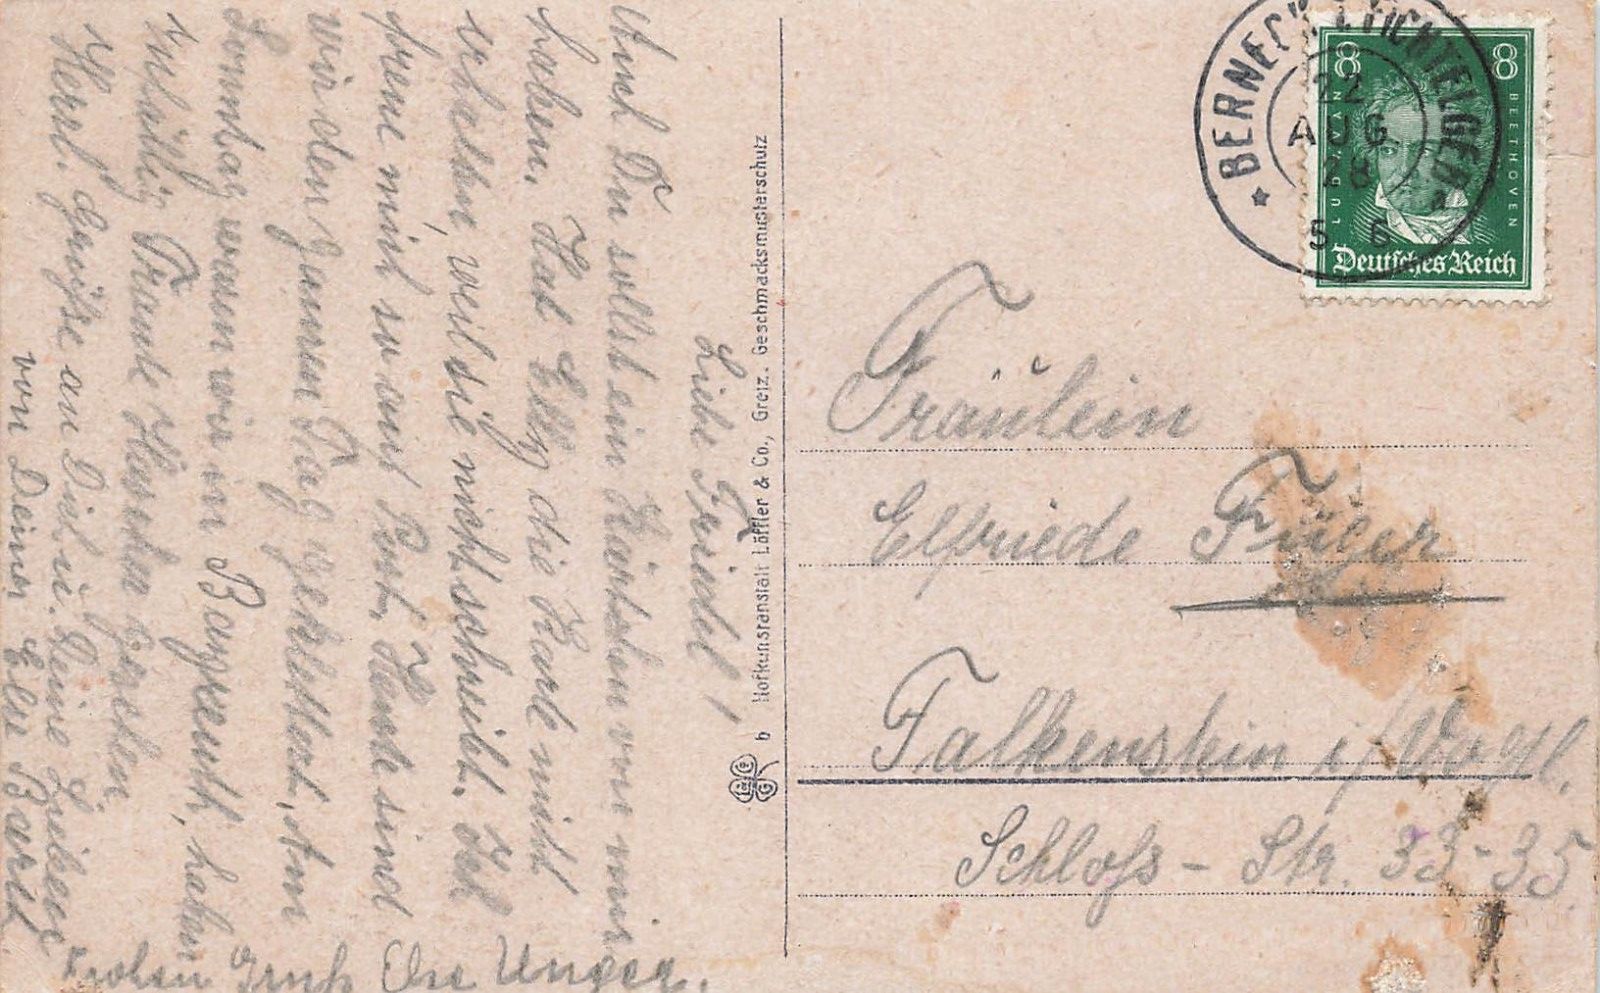 Liebe Friedel!
Auch Du sollst ein Kärtchen von mir
haben. Hat Elly die Karte nicht
erhalten, weil sie nicht schreibt. Ich
freue mich so auf Post. Heute sind
wir den ganzen Tag geklettert. Am
Sonntag waren wir in Bayreuth, haben
zufällig Traude gesehen.
Herzl. Grüße an Dich u. Deine Lieben
von Deiner Else
Gruß Else Unger.
b Hofkunstanstalt Löffler & Co., Greiz. Geschmacksmusterschutz
BERNECK I. FICHTELGEB.
22
AUG
28
5 6
8 8
LUDW. VAN BEETHOVEN
Deutsches Reich
Fräulein
Elfriede
Falkenstein i/Vogtl.
Schloß-Str. 33-35.